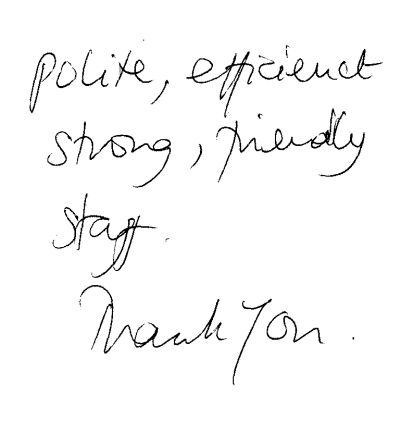 polite, efficienct
strong, friendly
staff.
Thank You.